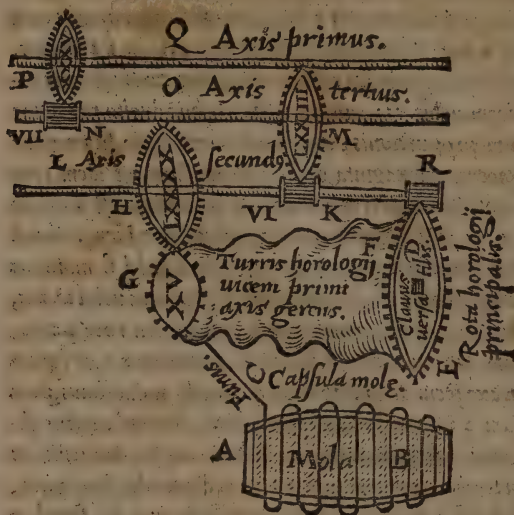 Q Axis primus.
P
O Axis tertius.
VII N M
L Axis secundꝰ R
LXXXX
H VI K
F
G XV
Turris horologij
uicem primi
axis gerens.
D
Clauus
Rota horologij
principalis.
E
Funis.
C Capsula molę.
A Mola B